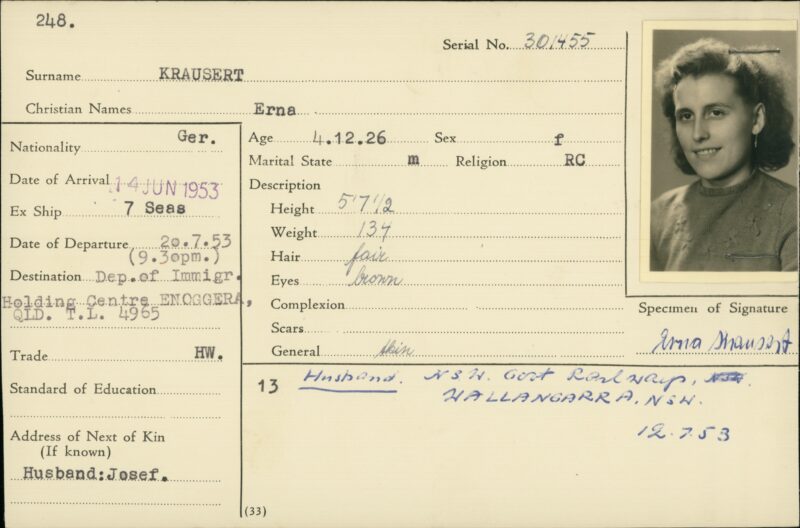 248.
Serial No. 301455
Surname KRAUSERT
Christian Names Erna
Nationality Ger.
Date of Arrival 14 JUN 1953
Ex Ship 7 Seas
Date of Departure 20.7.53
(9.30pm.)
Destination Dep.of Immigr.
Holding Centre ENOGGERA,
QLD. T.L. 4965
Trade HW.
Standard of Education
Address of Next of Kin
(If known)
Husband:Josef.
Age 4.12.26 Sex f
Marital State m Religion RC
Description
Height 5'7½
Weight 134
Hair fair
Eyes brown
Complexion
Scars
General thin
Specimen of Signature
Erna Krausert
13 Husband. N.S.W. Govt Railways, NSW.
WALLANGARRA. NSW.
12.7.53
(33)